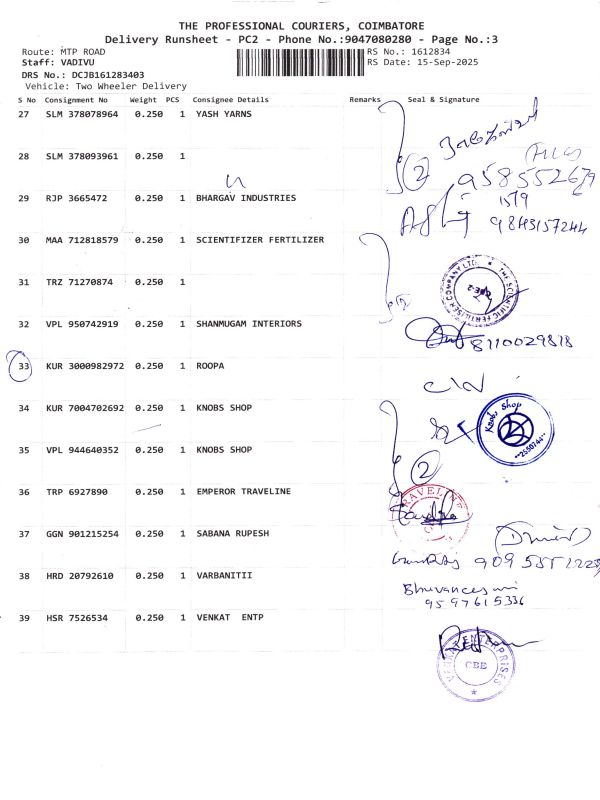 THE PROFESSIONAL COURIERS, COIMBATORE
Delivery Runsheet - PC2 - Phone No.:9047080280 - Page No.:3
Route: MTP ROAD
RS No.: 1612834
Staff: VADIVU
RS Date: 15-Sep-2025
DRS No.: DCJB161283403
Vehicle: Two Wheeler Delivery
S No Consignment No Weight PCS Consignee Details Remarks Seal & Signature
27 SLM 378078964 0.250 1 YASH YARNS
28 SLM 378093961 0.250 1
2
958552679
29 RJP 3665472 0.250 1 BHARGAV INDUSTRIES
1579
9843157244
30 MAA 712818579 0.250 1 SCIENTIFIZER FERTILIZER
31 TRZ 71270874 0.250 1
2
THE SCIENTIFIC FERTILISER COMPANY LTD. CBE-2
32 VPL 950742919 0.250 1 SHANMUGAM INTERIORS
8110029818
33 KUR 3000982972 0.250 1 ROOPA
34 KUR 7004702692 0.250 1 KNOBS SHOP
Knobs Shop
2550744
35 VPL 944640352 0.250 1 KNOBS SHOP
2
36 TRP 6927890 0.250 1 EMPEROR TRAVELINE
TRAVELINE
37 GGN 901215254 0.250 1 SABANA RUPESH
38 HRD 20792610 0.250 1 VARBANITII
Bhuvaneswari
9597615336
39 HSR 7526534 0.250 1 VENKAT ENTP
VENKAT ENTERPRISES
CBE